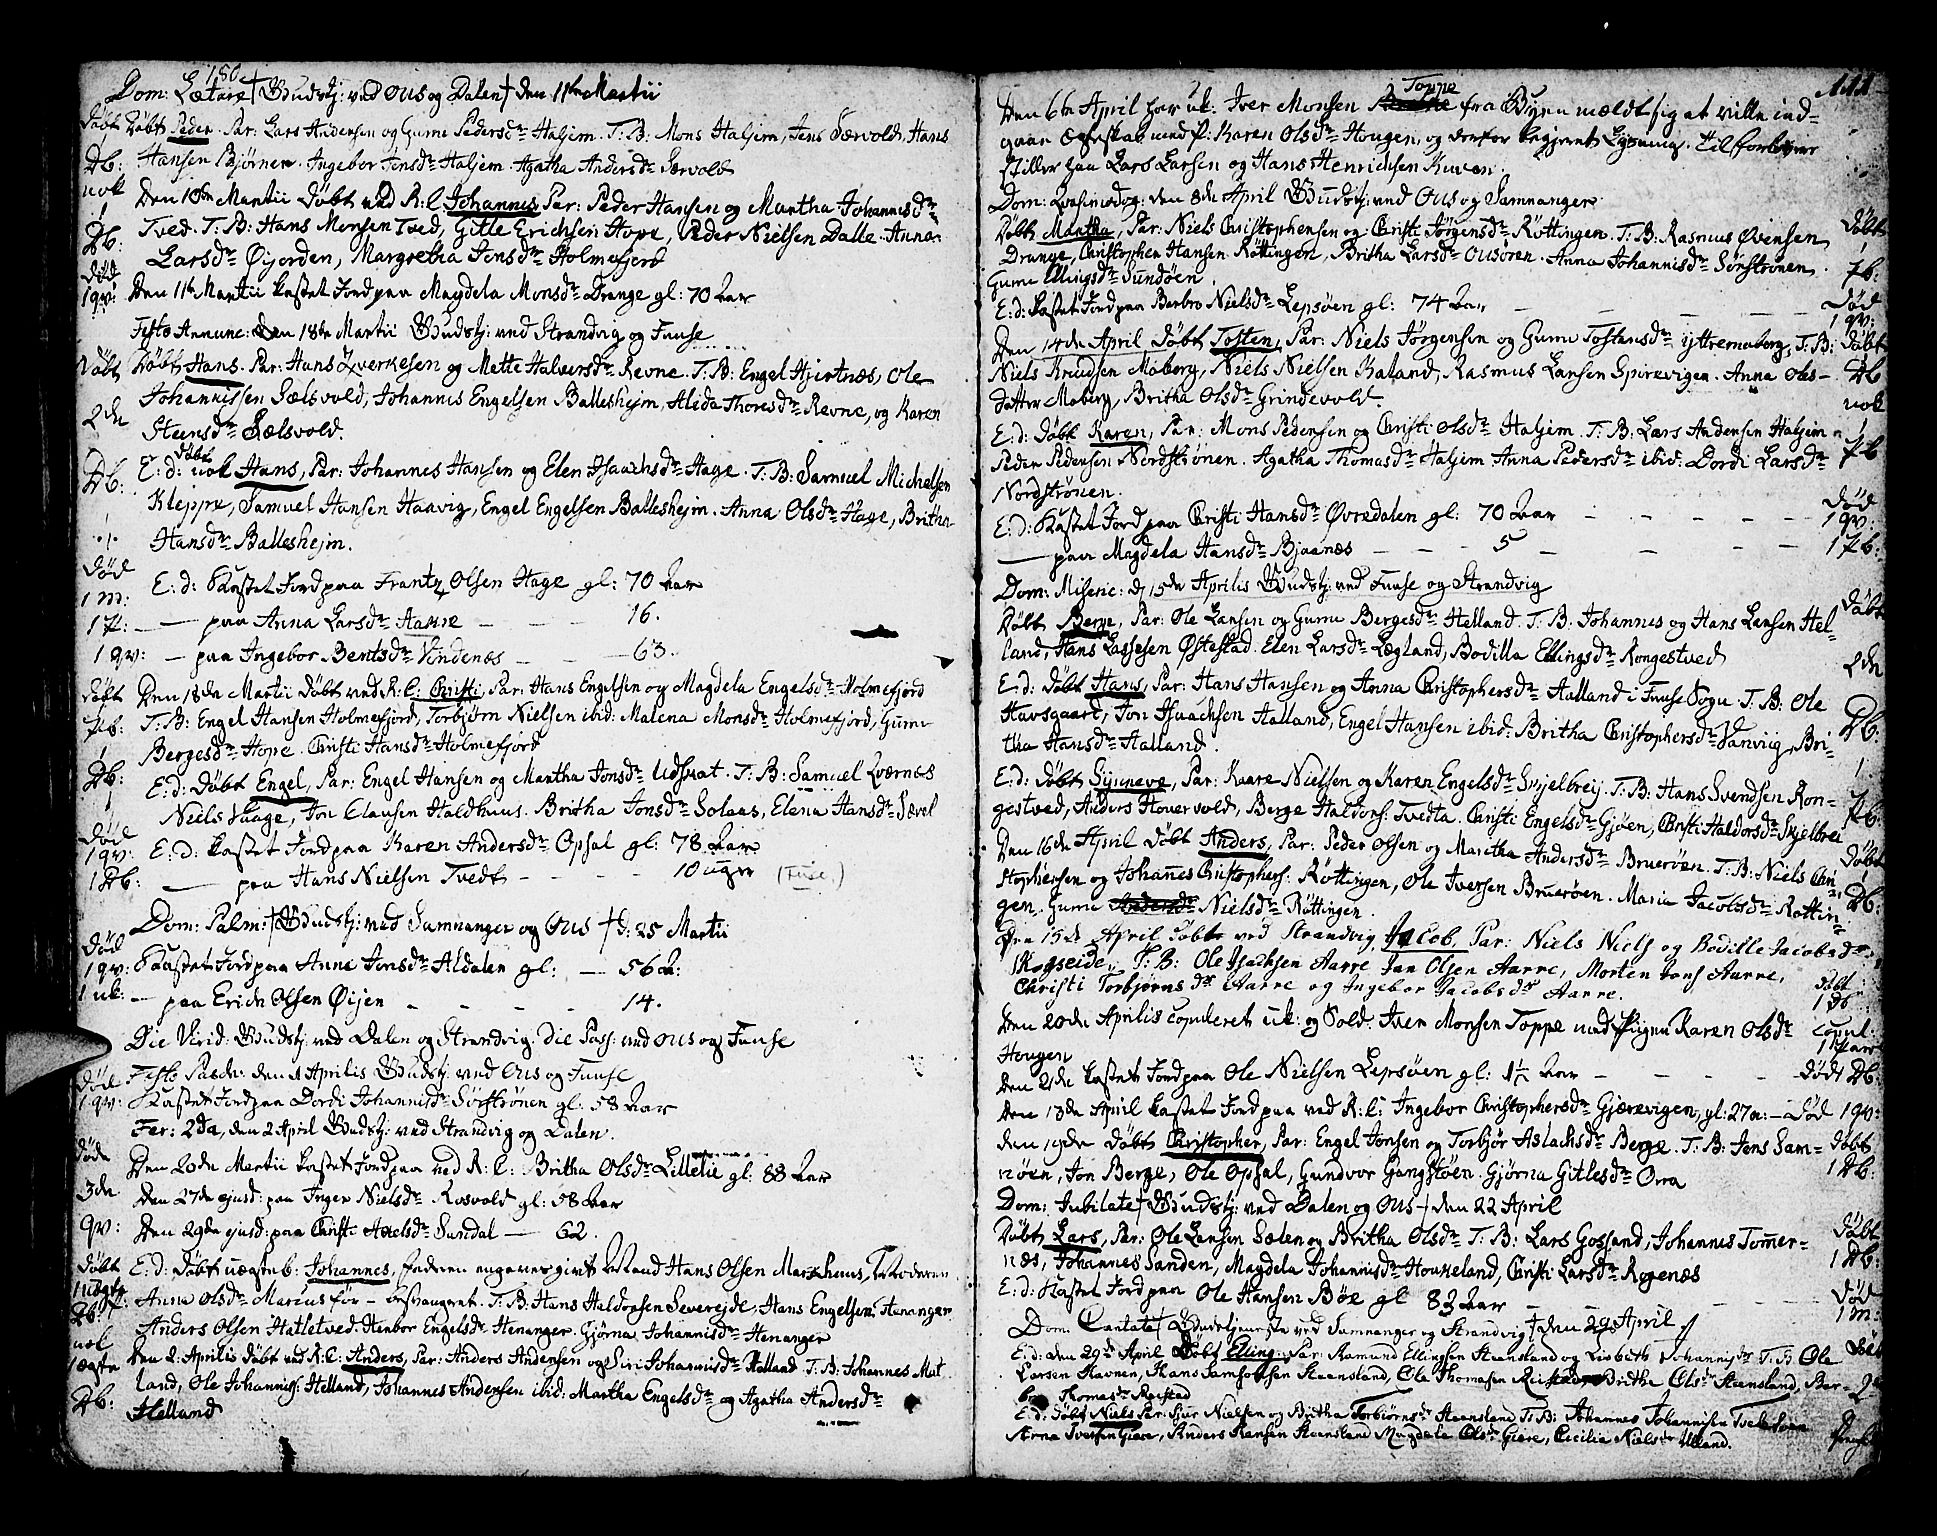 180.
Dom: Lætare † Gudstj: ved Ous og Dalen † den 11te Martii
Døbt Døbt Peder. Par: Lars Andersen og Gurne Pedersdr Haljem. T.B: Mons Haljem, Jens Særvold, Hans
Db: Hansen Bjørnen. Ingebor Jensdr Haljem. Agatha Andersdr Særvold
nok Den 10de Martii Døbt ved R:C: Johannis, Par: Peder Hansen og Martha Johannisdr
1 Db: Tved. T.B: Hans Monsen Tved, Gitle Erichsen Hope, Peder Nielsen Dalle. Anna
Larsdr Øjorden, Margretha Jensdr Holmefjord
død 1qv: Den 11te Martii kastet Jord paa Magdela Monsdr Drange gl: 70 Aar
Festo Annunc: Den 18de Martii Gudstj: ved Strandvig og Fuuse
Døbt Døbt Hans. Par: Hans Zverkesen og Mette Halversdr Revne. T.B: Engel Hjertnæs, Ole
Johannissen Sælsvold, Johannis Engelsen Ballesheim, Alida Thoresdr Revne, og Karen
2de Steensdr Sælsvold.
E:d: nok døbt Hans, Par: Johannes Hansen og Elen Isaachsdr Hage. T.B: Samuel Michelsen
Db: Kleppe, Samuel Hansen Haavig, Engel Engelsen Ballesheim. Anna Olsdr Hage, Britha
Hansdr Ballesheim.
død
1 m: E:d: Kastet Jord paa Frantz Olsen Hage gl: 70 Aar
1 P: — paa Anna Larsdr Haare — — 16.
1 qv: — paa Ingebor Bentsdr Vindenæs — — 63.
Døbt Den 18de Martii Døbt ved R:C: Christi, Par: Hans Engelsen og Magdela Engelsdr Holmefjord
Pb: T.B: Engel Hansen Holmefjord, Torbjørn Nielsen ibid: Malena Monsdr Holmefjord, Gurni
1 Bergesdr Hope. Christi Hansdr Holmefjord
Db: E:d: Døbt Engel, Par: Engel Hansen og Martha Jonsdr Udstrat. T.B: Samuel Lværnes
1 Niels Vaage, Jon Clausen Haldhuus. Britha Jonsdr Solaas, Elena Hansdr Sævel
død
1 qv: E:d: kastet Jord paa Karen Andersdr Opsal gl: 78 Aar
1 Db: — paa Hans Nielsen Tvedt — — 10 uger (Fuse.)
Dom: Palm: † Gudstj: ved Samnanger og Ous † d: 25 Martii
død
1 qv: Kastet Jord paa Anna Jonsdr Aldalen gl: — 56 A:
1 uk: — paa Erich Olsen Øijen — — 14.
Die Virid: Gudstj: ved Dalen og Strandvig. Die Pass: ved Ous og Fuuse
Festo Pasch: den 1 Aprilis Gudstj: ved Ous og Fuuse
Død
1 qv: Kastet Jord paa Dordi Johannisdr Sørströnen gl: 58 Aar
Fer: 2da, den 2 April Gudstj: ved Strandvig og Dalen.
døde Den 20de Martii kastet Jord paa ved R:C: Britha Olsdr Lilletie gl: 88 Aar
3de Den 27de ejusd: paa Inger Nielsdr Rosvold gl: 58 Aar
qv: Den 29de ejusd: paa Christi Axelsdr Sundal — 62.
døbt E:d: Døbt uægte b: Johannes, faderen angaves givt Mand Hans Olsen Markhuus, Moderen
1 uægte Anna Olsdr Marcus før — besvangeret. T.B: Hans Haldorsen Severejde, Hans Engelsen Henanger
Db: Anders Olsen Hatletved. Henbor Engelsdr Henanger. Gjørna Johannisdr Henanger
nok Den 2: Aprilis døbt ved R:C: Anders, Par: Anders Andersen og Siri Johannisdr Helland T.B: Johannes Mut
1 ægte land, Ole Johanniss: Helland, Johannes Andersen ibid: Martha Engelsdr og Agatha Andersdr
Db: Helland
111
Toppe
Den 6te April har uk: Iver Monsen fra Byen mældt sig at ville ind-
gaae Ægteskab med P: Karen Olsdr Hougen, og derfor begjeret Lysning. Til forlovere
stiller han Lars Larsen og Hans Henrichsen Kuven.
Dom: Qvasimodog: den 8de April Gudstj: ved Ous og Samnanger
Døbt Martha, Par: Niels Christophersen og Christi Jørgensdr Røttingen. T.B: Rasmus Øvensen Døbt
Drange, Christopher Hansen Røttingen, Britha Larsdr Ousören. Anna Johannisdr Sörströnen. 1
Gurne Ellingsdr Sundöen. Pb:
E:d: kastet Jord paa Barbro Nielsdr Lepsöen gl: 74 Aar — — — død 1 qv:
Den 14de April Døbt Tosten, Par: Niels Jörgensen og Gurne Tostensdr Yttremoberg, T.B: Døbt
Niels Knudsen Moberg, Niels Nielsen Kaland, Rasmus Larsen Spirevigen. Anna Ols- Db
datter Moberg, Britha Olsdr Grindevold. nok
E:d: Døbt Karen, Par: Mons Pedersen og Christi Olsdr Haljem. T.B: Lars Andersen Haljem 1
Peder Pedersen Nordströnen. Agatha Thomasdr Haljem Anna Pedersdr ibid: Dordi Larsdr Pb
Nordströnen.
E:d: Kastet Jord paa Christi Hansdr Øvredalen gl: 70 Aar — — — død 1 qv:
— paa Magdela Hansdr Bjaanæs — — 5 — — — 1 Pb:
Dom: Miseric: d 15de Aprilis Gudstj: ved Fuuse og Strandvig
Døbt Berge, Par: Ole Larsen og Gurne Bergesdr Helland. T.B: Johannes og Hans Larsen Hel- døbt
land, Hans Lassesen Østestad. Elen Larsdr Lægland, Bodilla Ellingsdr Rongestved 2de
E:d: Døbt Hans, Par: Hans Hansen og Anna Christophersdr Halland i Fuuse Sogn T.B: Ole
Havsgaard, Jon Isaachsen Halland, Engel Hansen ibid: Britha Christophersdr Vanvig, Bri- Db:
tha Hansdr Halland.
E:d: Døbt Synneve, Par: Kaare Nielsen og Karen Engelsdr Skjelbreij. T.B: Hans Svendsen Ron- 1
gestved, Anders Hovervold, Berge Haldors: Tvedta. Christi Engelsdr Gjøen, Christi Haldorsdr Skjelbrei Pb:
Den 16de April Døbt Anders, Par: Peder Olsen og Maritha Andersdr Bruerøen. T.B: Niels Chri Døbt
stophersen og Johannes Christophers: Røttingen, Ole Iversen Bruerøen. Maria Jacobsdr Røttin- 1
gen. Gurne Nielsdr Røttingen. Db:
Den 15de April Døbt ved Strandvig Jacob, Par: Niels Niels og Bodille Jacobsdr
Skogseide. T.B: Ole Isachsen Aarre Jan Olsen Aarre, Morten Aarre,
Christi Torbjørnsdr Aarre og Ingebor Jacobsdr Aarre. Døbt 1 Db
Den 20de Aprilis copuleret uk: og Sold. Iver Monsen Toppe med Pigen Karen Olsdr Copul:
Hougen 1 Par
Den 21de kastet Jord paa Ole Nielsen Lepsöen gl: 1½ Aar — — — død 1 Db:
Den 13de April kastet Jord paa ved R:C: Ingebor Christophersdr Gjærevigen, gl: 27 a: — Død 1 qv:
Den 19de Døbt Christopher, Par: Engel Jonsen og Torbjør Aslachsdr Berge. T.B: Jens Sam- Døbt
nøen, Jon Berge, Ole Opsal, Gundvor Gangstøen. Gjørna Gitlesdr Orra 1 Db:
Dom: Jubilate † Gudstj: ved Dalen og Ous † den 22 April
Døbt Lars, Par: Ole Larsen Sælen og Britha Olsdr T.B: Lars Gossand, Johannis Tømmer- Døbt
næs, Johannes Sanden, Magdela Johannisdr Houkeland, Christi Larsdr Røgenæs 1 Db:
E:d: Kastet Jord paa Ole Hansen Böe gl 83 Aar — — død 1 m:
Dom: Cantate † Gudstjeneste ved Samnanger og Strandvig † den 29 April
E:d: den 29d April Døbt Elling, Par: Aamund Ellingsen Steensland og Lisbeth Johannisdr T.B: Ole Døbt
Larsen Havnen, Hans Samsonsen Steensland, Ole Thomasen Reistad, Britha Olsdr Steensland, Bar- 2
bro Thomasdr Reistad
E:d: Døbt Niels Par: Siur Nielsen og Britha Torbiörnsdr Steensland T.B: Johannes Johannisen Tvet
Arne Iversen Giere, Anders Hansen Steensland Magdele Olsdr Giere, Cecilia Nielsdr Ulland.